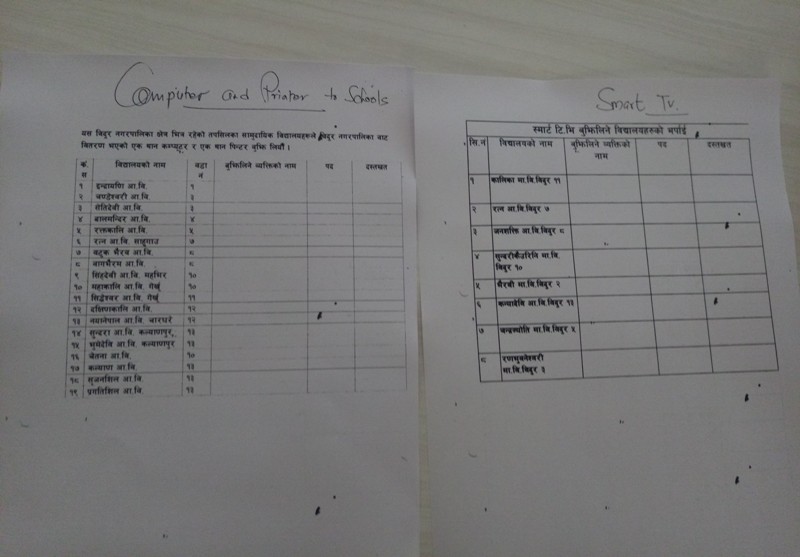 Computer and Printer to Schools
यस विदुर नगरपालिका क्षेत्र भित्र रहेको तपसिलका सामुदायिक विद्यालयहरुले विदुर नगरपालिका बाट
वितरण भएको एक थान कम्प्युटर र एक थान प्रिन्टर बुझि लियौं ।
क्र. स विद्यालयको नाम वडा नं बुझिलिने व्यक्तिको नाम पद दस्तखत
१ इन्द्रायणि आ.वि. १
२ चण्डेश्वरी आ.वि. ३
३ सेतिदेवी आ.वि. ३
४ बालमन्दिर आ.वि. ४
५ रक्तकालि आ.वि. ५
६ रत्न आ.वि. ७
७ बटुक भैरव आ.वि. ८
८ बागभैरम आ.वि. ८
९ सिंहदेवी आ.वि. १०
१० महाकालि आ.वि. गेर्खु १०
११ सिद्धेश्वर आ.वि. गेर्खु ११
१२ दक्षिणकालि आ.वि. १२
१३ नयानेपाल आ.वि. चारघरे १२
१४ सुन्दरा आ.वि. कल्याणपुर, १३
१५ भुमेदेवि आ.वि. कल्याणपुर १३
१६ चेतना आ.वि. १०
१७ कल्याण आ.वि. १३
१८ सृजनशिल आ.वि. १३
१९ प्रगतिशिल आ.वि. १३
Smart Tv.
स्मार्ट टि.भि बुझिलिने विद्यालयहरुको भर्पाई
सि.नं विद्यालयको नाम बुझिलिने व्यक्तिको नाम पद दस्तखत
१ कालिका मा.वि.विदुर ११
२ रत्न आ.वि.विदुर ७
३ जनशक्ति आ.वि.विदुर ८
४ मा.वि.
विदुर १०
५ भैरवी मा.वि.विदुर २
६ कन्यादेवि आ.वि.विदुर १३
७ चन्द्रज्योति मा.वि.विदुर ५
८ रणभुवनेश्वरी
मा.वि.विदुर ३